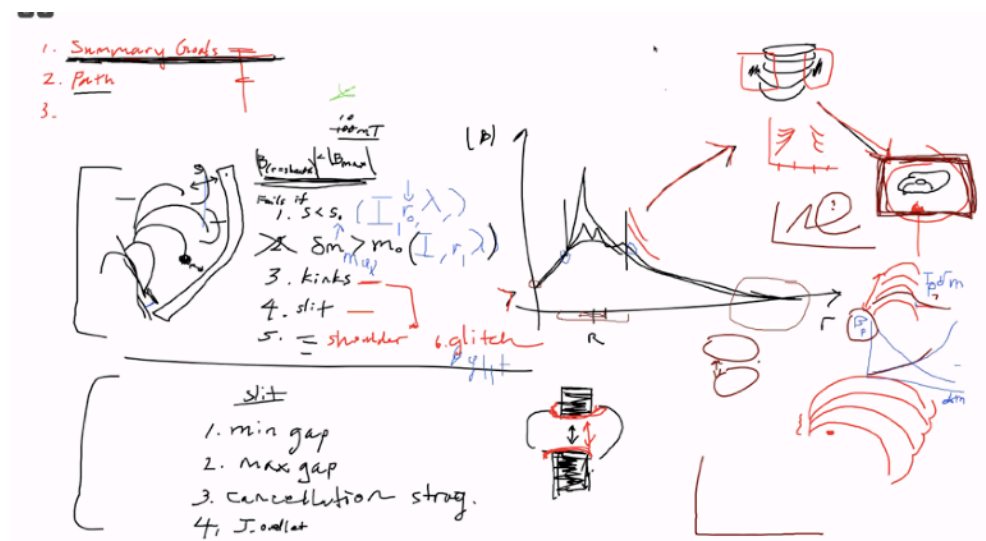 1. Summary Goals
2. Path
3.
10
100mT
|B(constraint)| < |Bmax|
Fails if
1. S < S₀ (I, r₀, λ,)
2. δm > m₀ (I, r, λ)
3. kinks
4. slit
5. = shoulder
6. glitch
|B|
R
r
?
slit
1. min gap
2. max gap
3. cancellation strag.